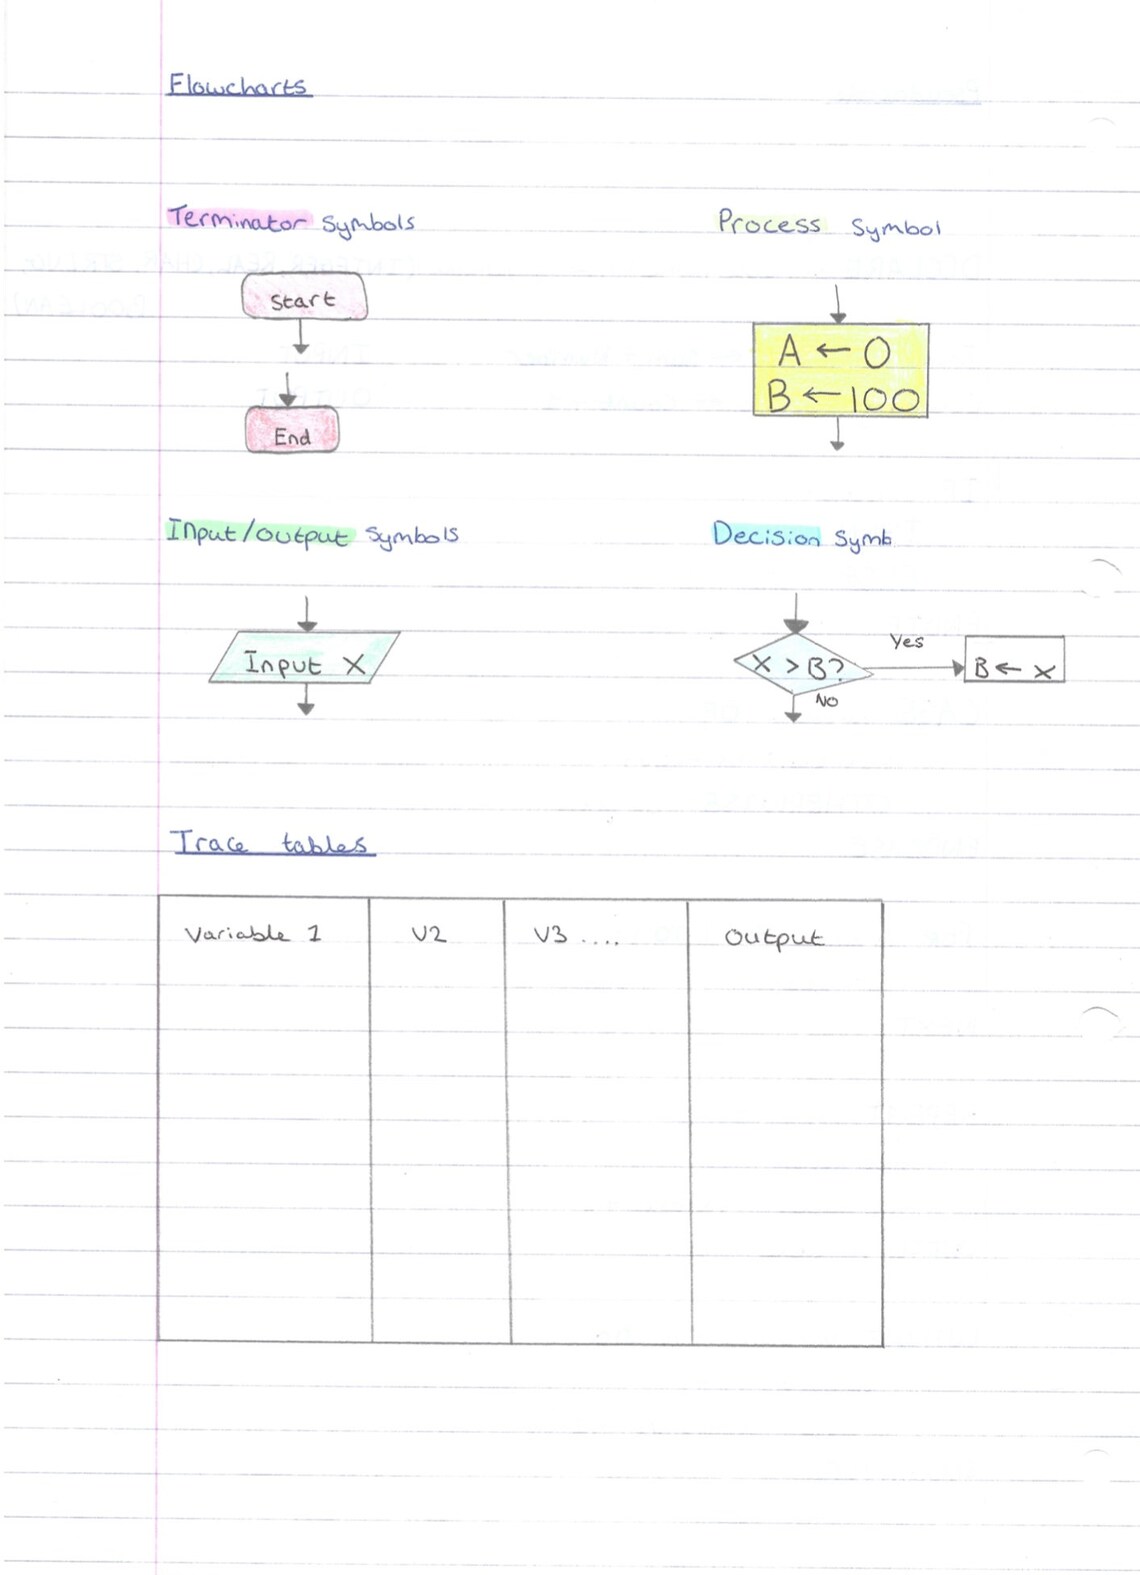 Flowcharts
Terminator Symbols
Start
End
Process Symbol
A ← 0
B ← 100
Input/output Symbols
Input X
Decision Symb
X > B?
Yes
B ← x
No
Trace tables
Variable 1 V2 V3 .... Output